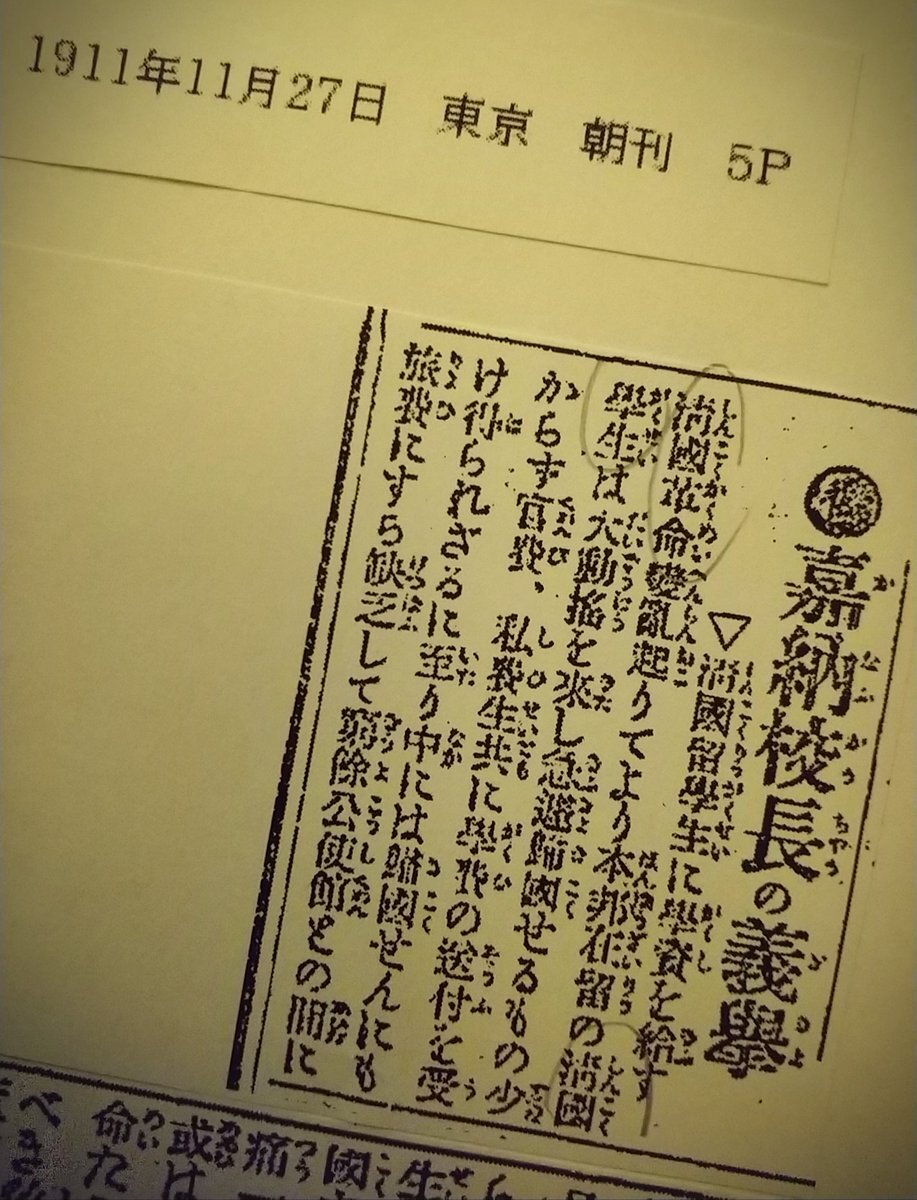 1911年11月27日 東京 朝刊 5P
●嘉納校長の義擧
▽清國留學生に學資を給す
清國革命變亂起りてより本邦在留の清國
學生は大動搖を来し急遽歸國せるもの少
からず官費、私費生共に學費の送付を受
け得られざるに至り中には歸國せんにも
旅費にすら缺乏して窮餘公使館との間に
生
國
痛
或は
命た
べき